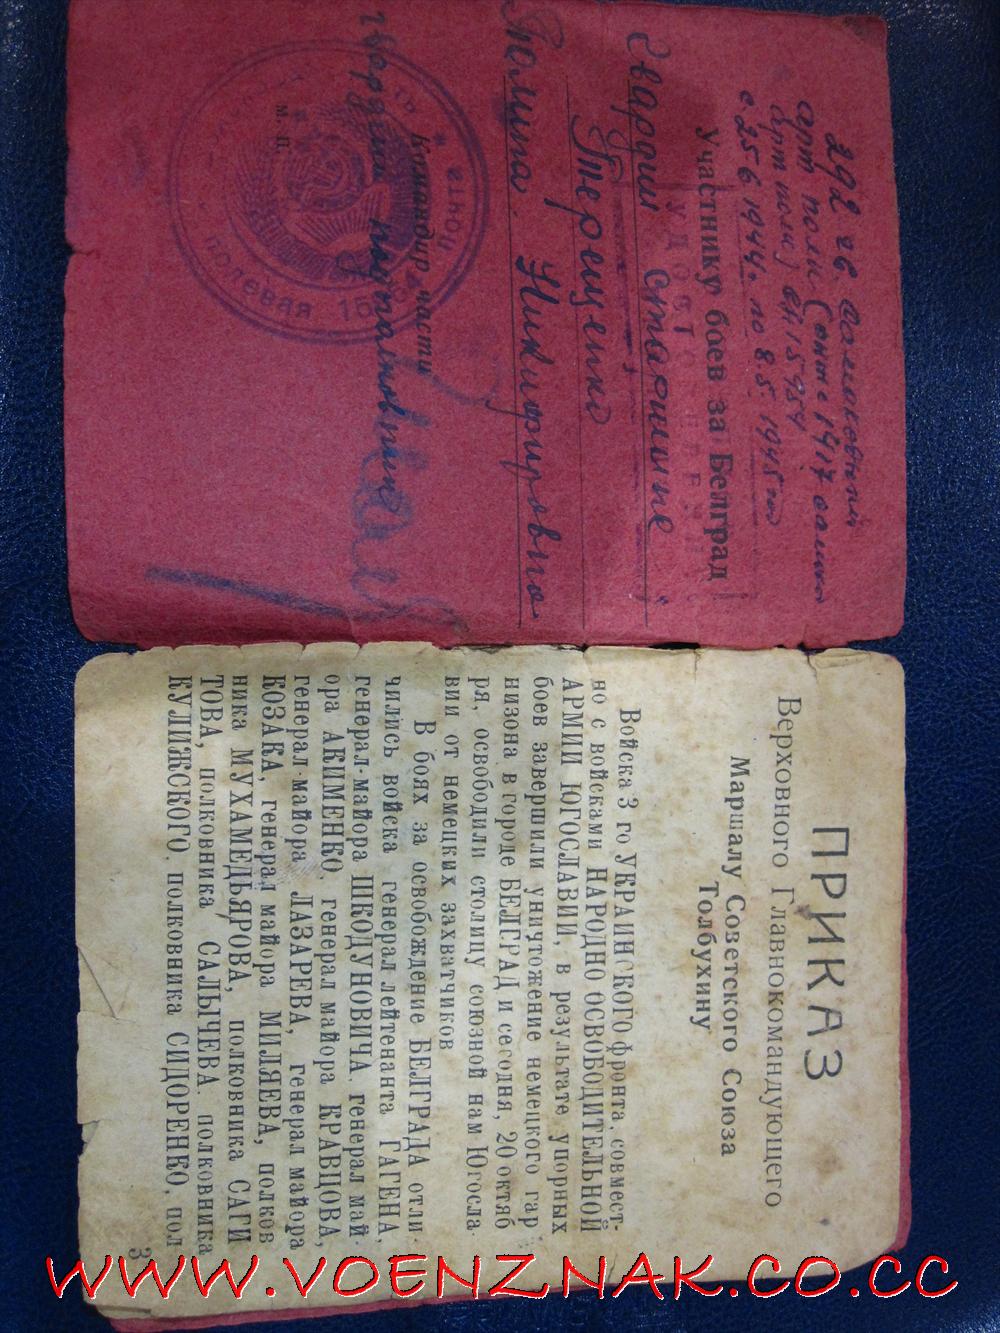 292 гв. самоходный
арт полк (
арт полк)
с 25 6 1944 г. по 8.5. 1945 год
Участнику боев за Белград
Гвардии старшине
Терещенко
Никифировно
Командир части
м. п.
гвардии подполковник
полевая почта
ПРИКАЗ
Верховного Главнокомандующего
Маршалу Советского Союза
Толбухину
Войска 3 го УКРАИНСКОГО фронта, совмест-
но с войсками НАРОДНО ОСВОБОДИТЕЛЬНОЙ
АРМИИ ЮГОСЛАВИИ, в результате упорных
боев завершили уничтожение немецкого гар
низона в городе БЕЛГРАД и сегодня, 20 октяб
ря, освободили столицу союзной нам Югосла
вии от немецких захватчиков
В боях за освобождение БЕЛГРАДА отли
чились войска генерал лейтенанта ГАГЕНА,
генерал-майора ШКОДУНОВИЧА, генерал май-
ора АКИМЕНКО генерал майора КРАВЦОВА,
генерал-майора ЛАЗАРЕВА, генерал майора
КОЗАКА, генерал майора МИЛЯЕВА, полков
ника МУХАМЕДЬЯРОВА, полковника САГИ
ТОВА, полковника САЛЫЧЕВА, полковника
КУЛИЖСКОГО, полковника СИДОРЕНКО, пол
3
WWW.VOENZNAK.CO.CC